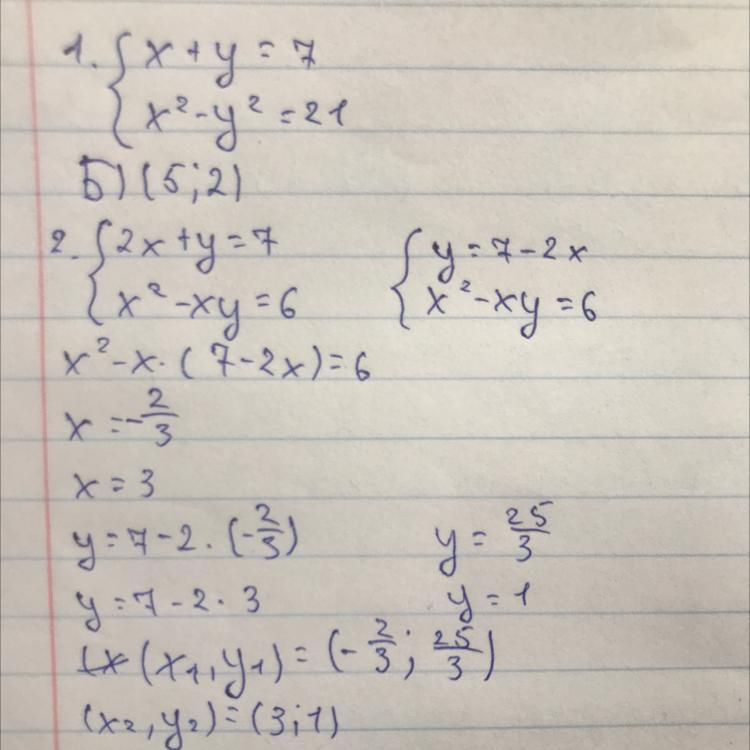 1. { x + y = 7
x² - y² = 21
Б) (5; 2)
2. { 2x + y = 7 { y = 7 - 2x
x² - xy = 6 x² - xy = 6
x² - x · (7 - 2x) = 6
x = -2/3
x = 3
y = 7 - 2 · (-2/3) y = 25/3
y = 7 - 2 · 3 y = 1
(x₁, y₁) = (-2/3; 25/3)
(x₂, y₂) = (3; 1)